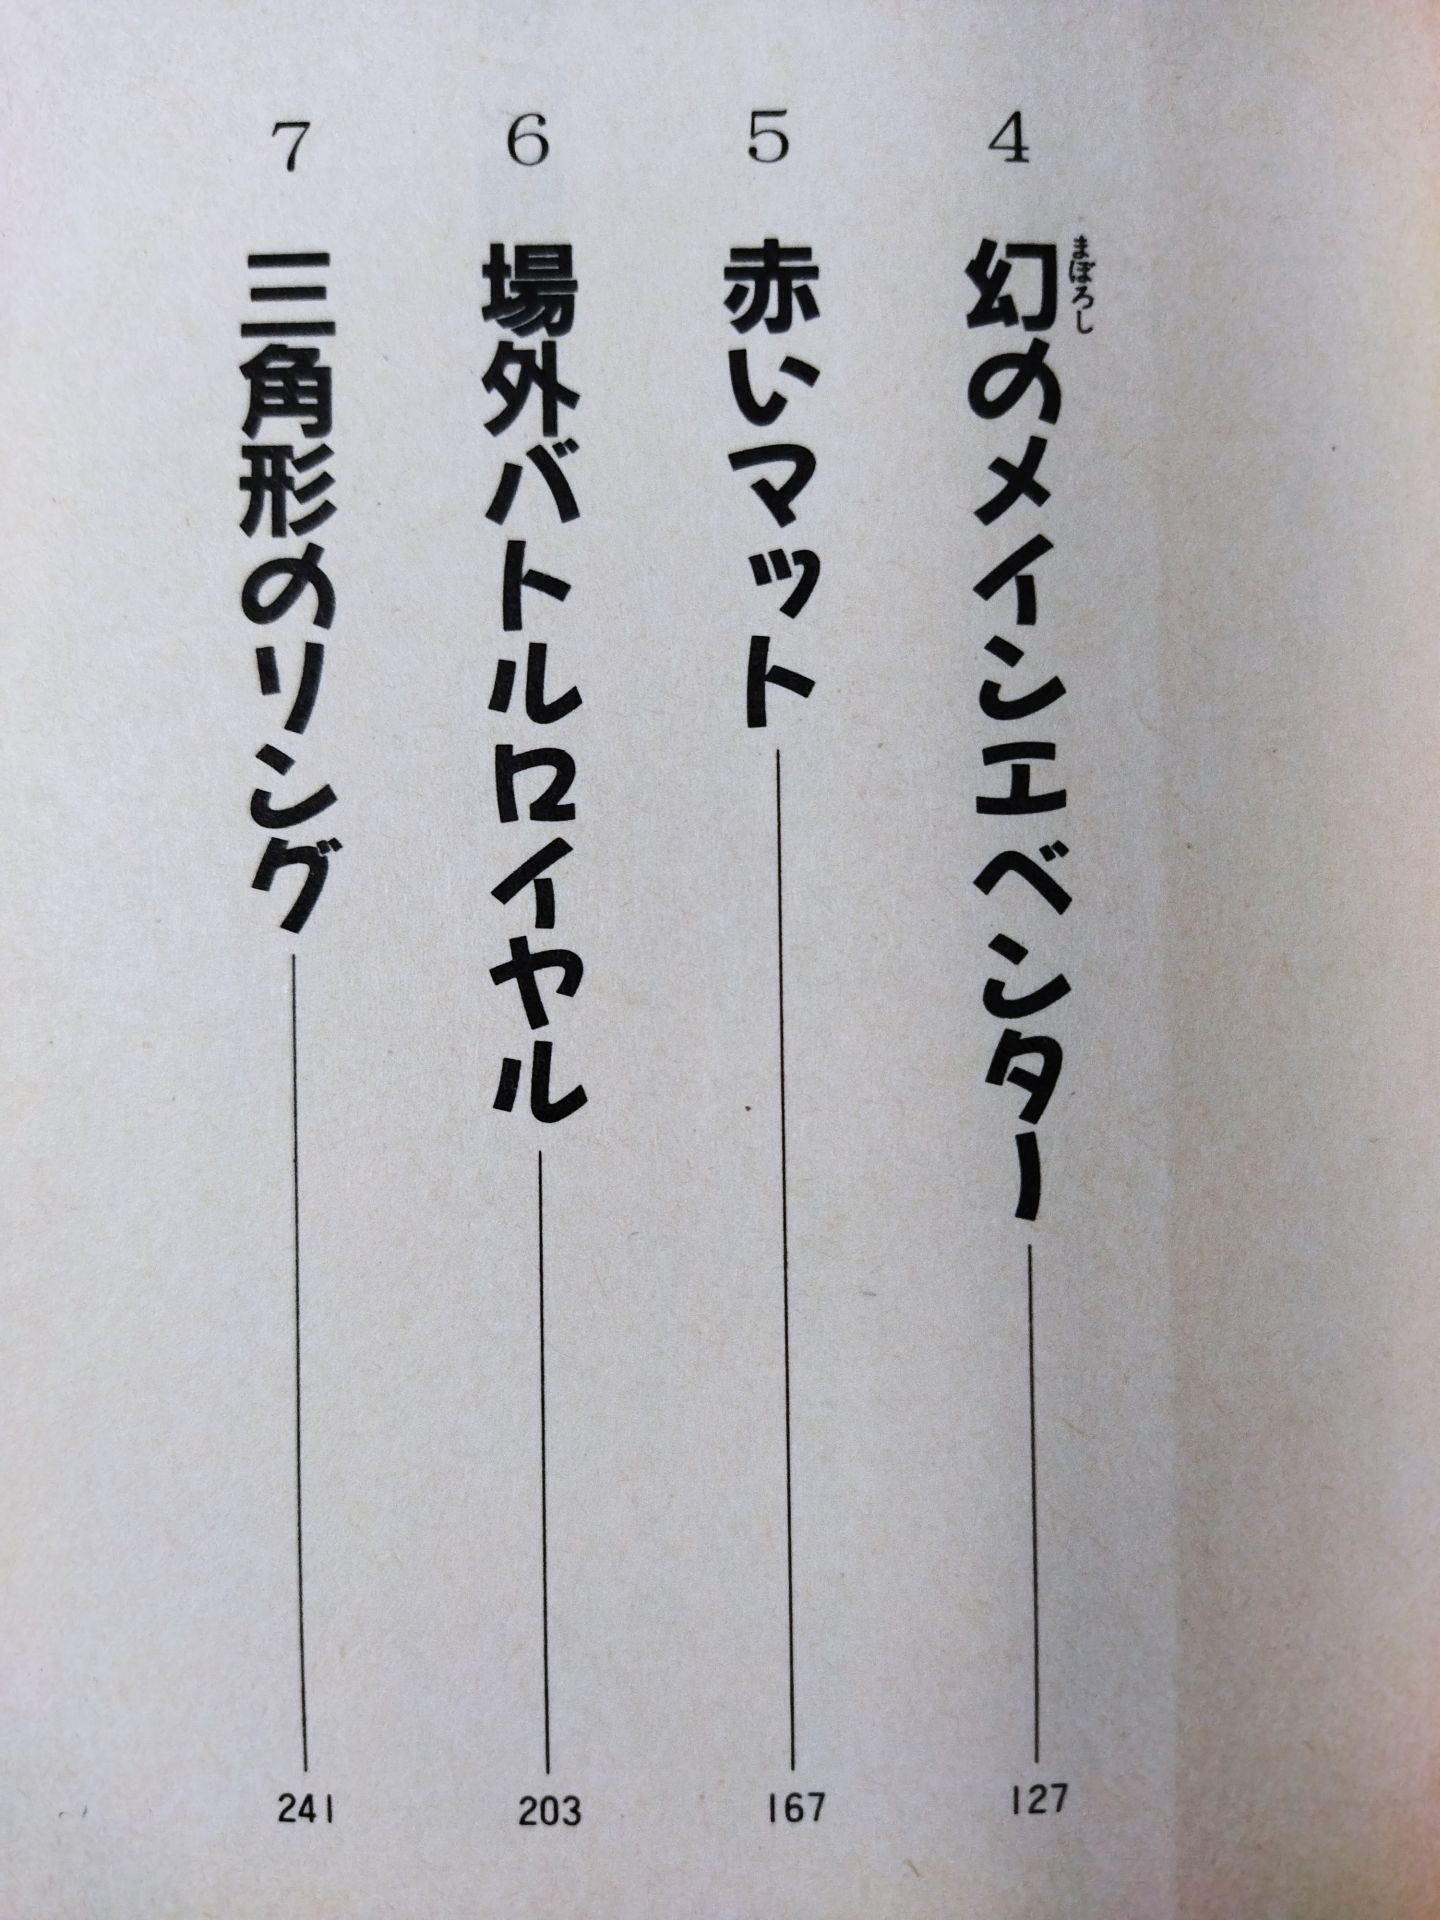 4 幻のメインエベンター 127
まぼろし
5 赤いマット 167
6 場外バトルロイヤル 203
7 三角形のリング 241